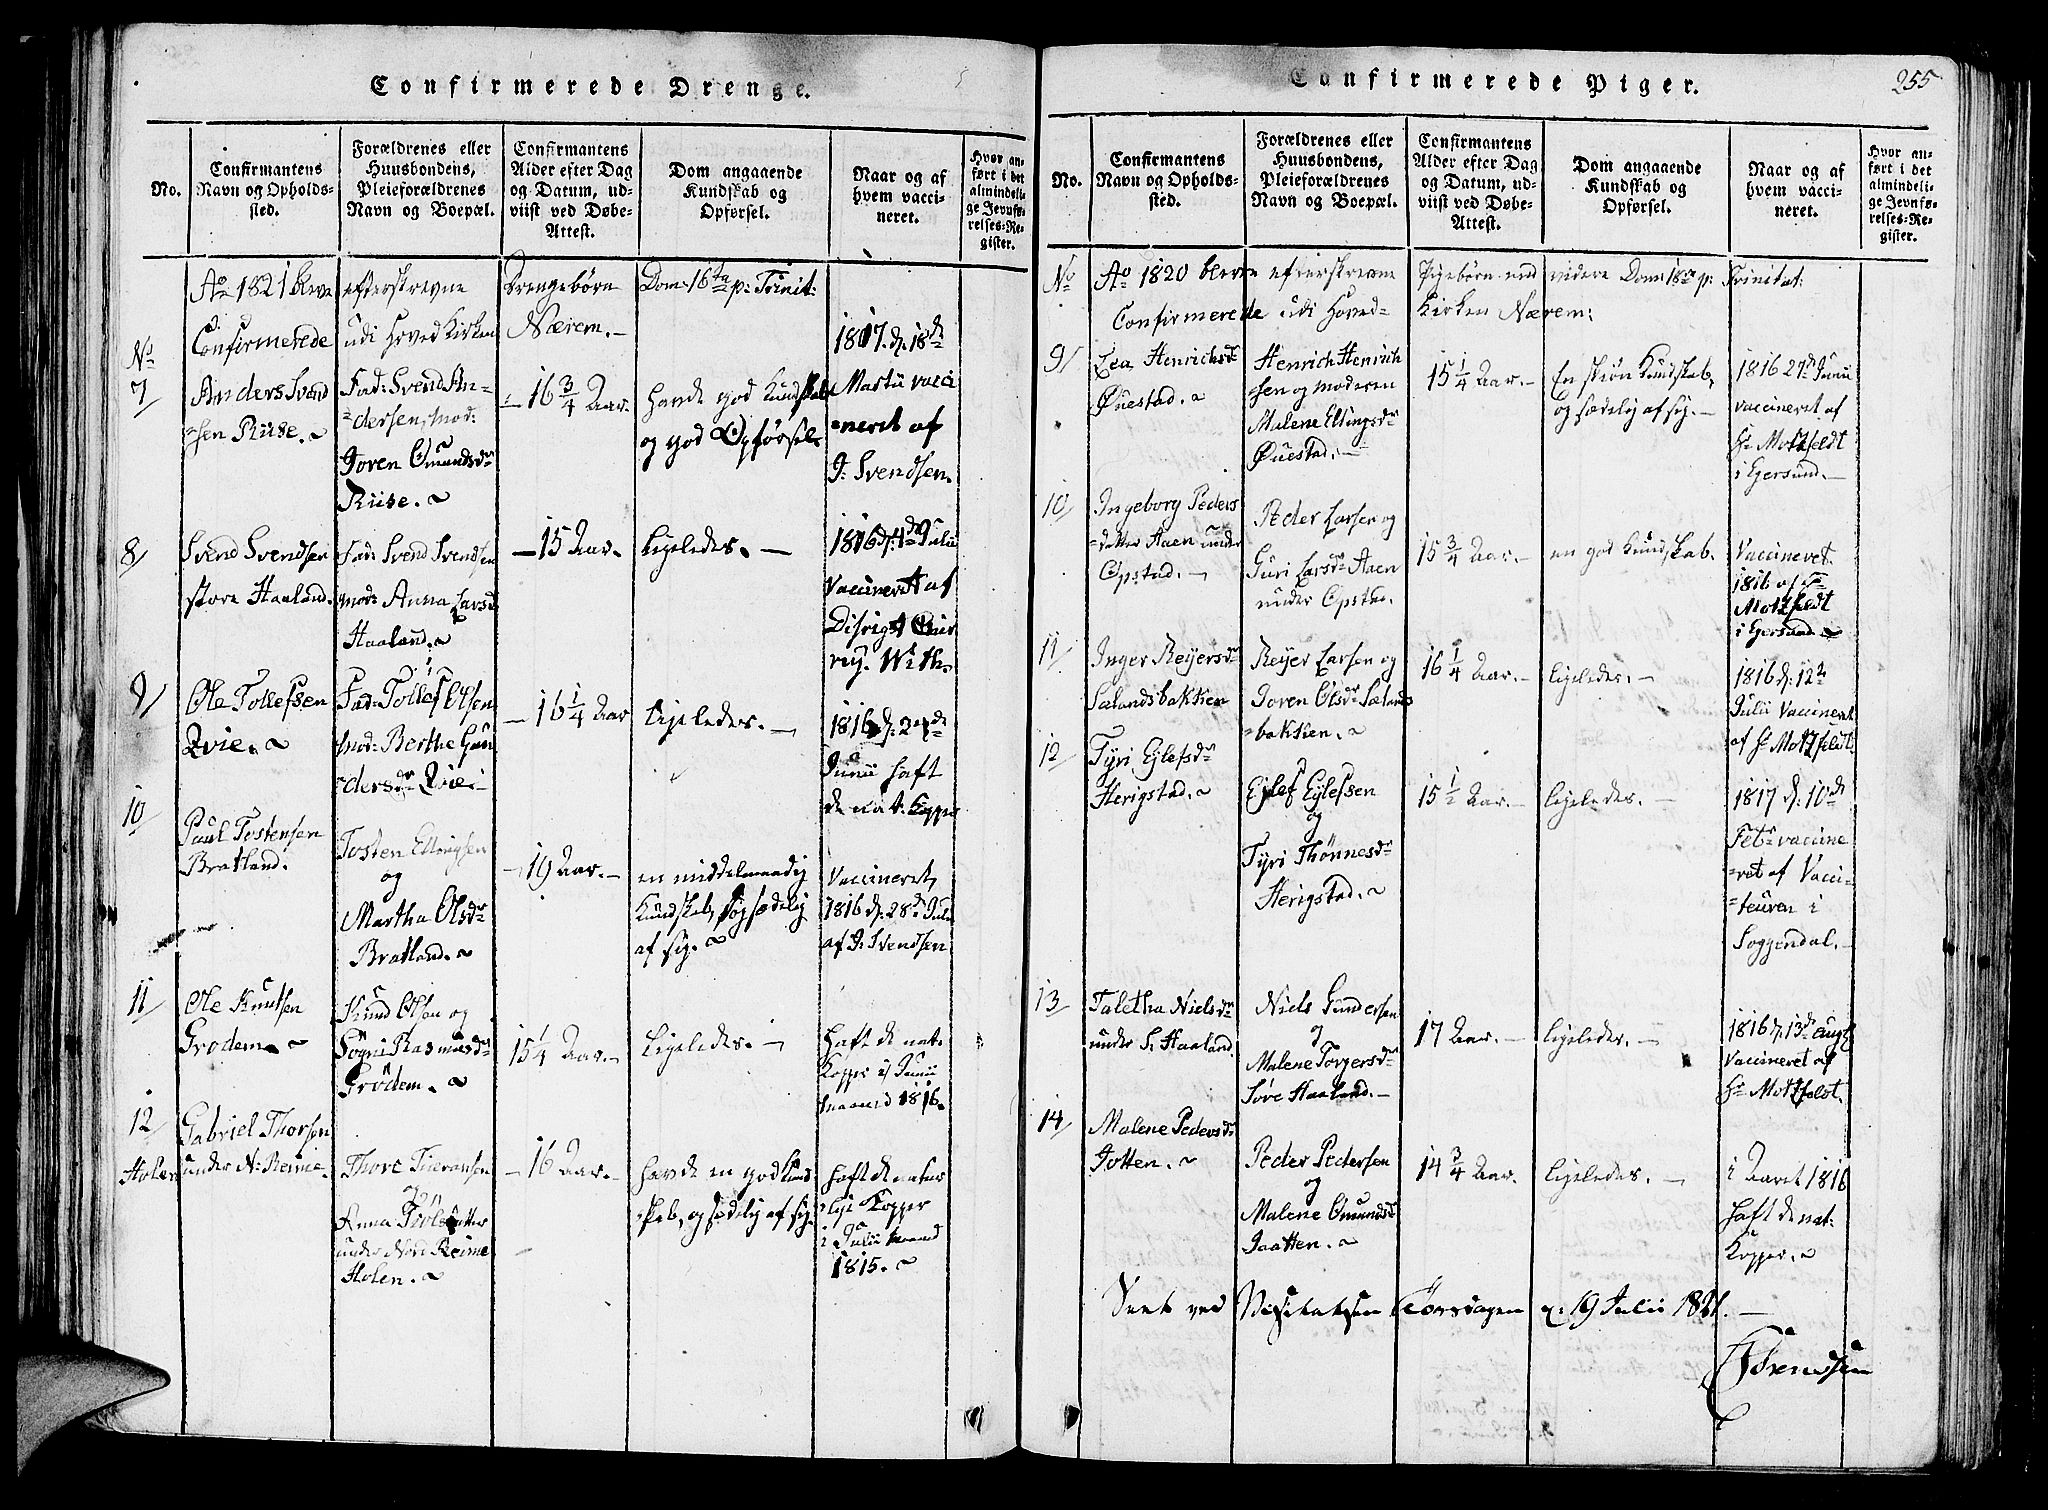 Confirmerede Drenge.
No.
Confirmantens
Navn og Opholds-
sted.
Forældrenes eller
Huusbondens,
Pleieforældrenes
Navn og Boepæl.
Confirmantens
Alder efter Dag
og Datum, ud-
viist ved Døbe-
Attest.
Dom angaaende
Kundskab og
Opførsel.
Naar og af
hvem vacci-
neret.
Hvor an-
ført i det
almindeli-
ge Jevnfø-
relses-Re-
gister.
Ao 1821 bleve efterskrevne Drengebørn Dom: 16ta p: Trinit:
Confirmerede udi Hoved Kirken Nærem.
No
7
Anders Svend
=sen Riise.
Fad: Svend An-
=dersen, Mod:
Joren Omundsdr
Riise.
16 3/4 Aar.
Havde god Kundskab
og god Opførsel.
1817. d. 18de
Martii vacci
=neret af
J: Svendsen.
8/
Svend Svendsen
store Haaland.
Fad: Svend Svendsen
Mod: Anna Larsdr
Haaland.
15 Aar.
Ligeledes.
1816 d. 4de Julii
Vaccineret af
With.
9/
Ole Tollefsen
Qvie.
Fad: Tollef Olsen
Mod: Berthe Gun
=dersdr Qvie.
16 1/4 Aar
Ligeledes.
1816 d. 24de
Junii haft
de nat. Kopper
10
Paul Tostensen
Bratland.
Tosten Ellingsen
og
Martha Olsdr
Bratland.
19 Aar.
en middelmaadig
Kundskab, og sædelig
af sig.
Vaccineret,
1816 d. 28de Julii
af J. Svendsen
11
Ole Knutsen
Grødem.
Knud Olsen og
Søgni Rasmusdr
Grødem.
15 1/4 Aar.
Ligeledes.
Haft de nat.
Kopper i Junii
Maaned 1816.
12
Gabriel Thorsen
Holen under N: Reime.
Thore
og
Anna
under Nord Reime
Holen.
16 Aar.
Havde en god Kund
=skab, og sædelig af sig.
Haft de natur
=lige Kopper
i Julii Maaned
1815.
Confirmerede Piger.
255
No.
Confirmantens
Navn og Opholds-
sted.
Forældrenes eller
Huusbondens,
Pleieforældrenes
Navn og Boepæl.
Confirmantens
Alder efter Dag
og Datum, ud-
viist ved Døbe-
Attest.
Dom angaaende
Kundskab og
Opførsel.
Naar og af
hvem vacci-
neret.
Hvor an-
ført i det
almindeli-
ge Jevnfø-
relses-Re-
gister.
No Ao 1820 bleve efterskrevne Pigebørn end videre Dom: 18de p: Trinitat:
Confirmerede udi Hoved- Kirken Nærem:
9/
Lea Henrichsdr
Øuestad.
Henrich Henrich
sen og Moderen
Malene Ellingsdr
Øuestad.
15 1/4 Aar.
En skiøn Kundskab,
og sædelig af sig.
1816 27de Junii
vaccineret af
Hr Motzfeldt
i Egersund.
10/
Ingeborg Peders
=datter Aaen under
Opstad.
Peder Larsen og
Guri Larsdr Aaen
under Opstad.
15 3/4 Aar.
en god Kundskab.
Vaccineret
1816 af Hr
Motzfeldt
i Egersund.
11/
Inger Reyersdr
Sælandsbakken
Reyer Larsen og
Joren Olsdr Sælands
=bakken.
16 1/4 Aar.
ligeledes.
1816 d. 12te
Julii Vaccineret
af Hr Motzfeldt
12
Tyri Eylefsdr
Herigstad.
Eylef Eylefsen
og
Tyri Thønnesdr
Herigstad.
15 1/2 Aar.
ligeledes.
1817 d. 10de
Febr vaccine
=ret af Vacci-
=teuren i
Soggendal.
13
Taletha Nielsdr
under S. Haaland.
Niels Gundersen
og
Malene Torgersdr
Støre Haaland.
17 Aar.
ligeledes.
1816 d. 13de Augs
Vaccineret af
Hr Motzfeldt.
14
Malene Pedersdr
Jotten.
Peder Pedersen
og
Malene Omundsdr
Jaatten.
14 3/4 Aar.
ligeledes.
i Aaret 1816
haft de nat:
Kopper.
Seet ved Visitatsen Torsdagen d: 19 Julii 1821.
Sørensen